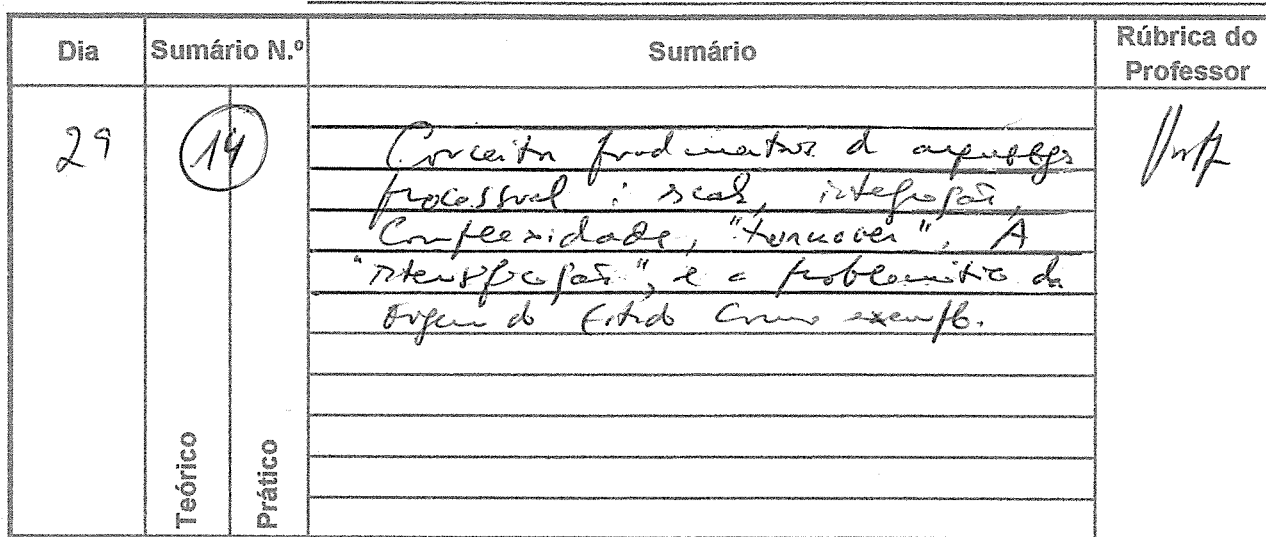 Dia Sumário N.º Sumário Rúbrica do Professor
29 14
Conceitos fundamentais da arqueologia
processual: scale, integração,
Complexidade, "turnover". A
"intensificação", e a problemática da
Origem do Estado Como exemplo.
Teórico
Prático